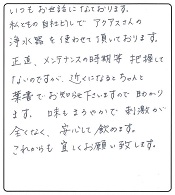 いつもお世話になっております。
私どもの自社ビルで アクアスさんの
浄水器を使わせて頂いております。
正直、メンテナンスの時期等 把握して
ないのですが、近くになるとちゃんと
葉書でお知らせ下さいますので助かり
ます。 味もまろやかで 刺激が
全くなく、安心して飲めます。
これからも宜しくお願い致します。